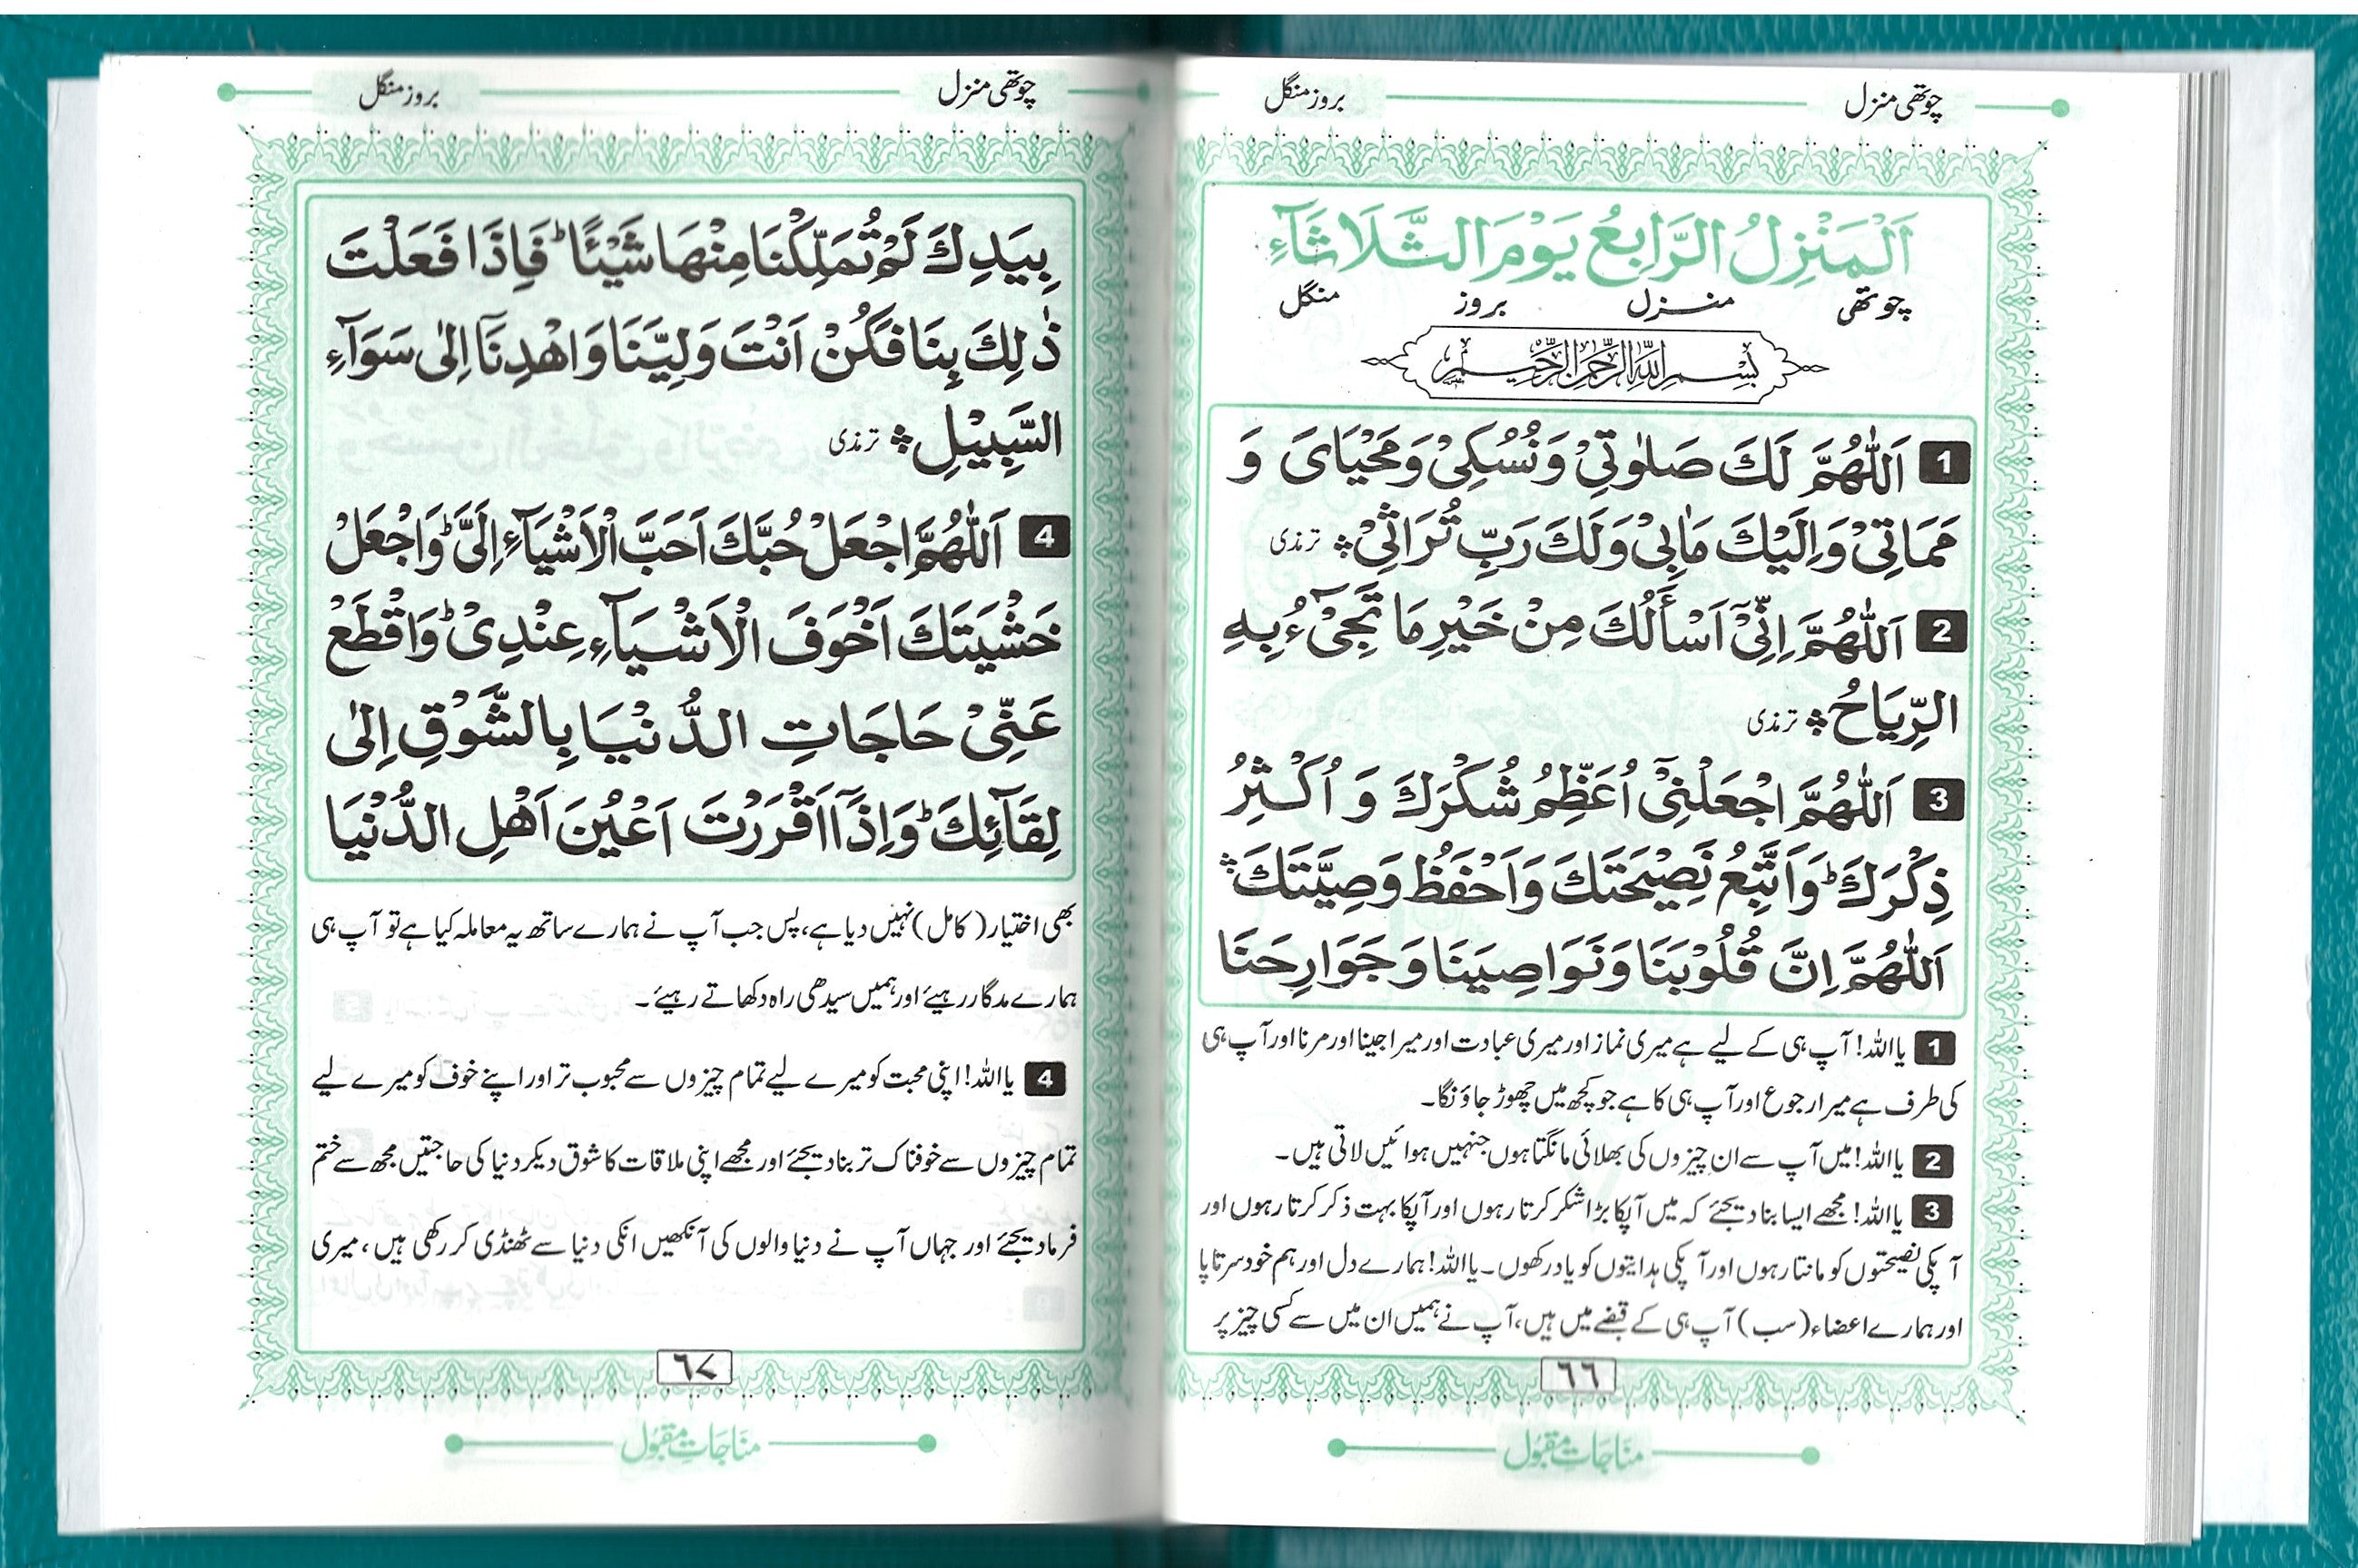 چوتھی منزل بروز منگل
اَلْمَنْزِلُ الرَّابِعُ يَوْمَ الثَّلَاثَآءِ
چوتھی منزل بروز منگل
بسم الله الرحمن الرحيم
1 اَللّٰهُمَّ لَكَ صَلٰوتِيْ وَنُسُكِيْ وَمَحْيَايَ وَ
مَمَاتِيْ وَاِلَيْكَ مَاٰبِيْ وَلَكَ رَبِّ تُرَاثِيْ ترمذی
2 اَللّٰهُمَّ اِنِّيْٓ اَسْأَلُكَ مِنْ خَيْرِ مَا تَجِيْٓءُ بِهِ
الرِّيَاحُ ترمذی
3 اَللّٰهُمَّ اجْعَلْنِيْٓ اُعَظِّمُ شُكْرَكَ وَ اُكْثِرُ
ذِكْرَكَ ؕ وَاَتَّبِعُ نَصِيْحَتَكَ وَاَحْفَظُ وَصِيَّتَكَ
اَللّٰهُمَّ اِنَّ قُلُوْبَنَا وَنَوَاصِيَنَا وَجَوَارِحَنَا
1 یااللہ! آپ ہی کے لیے ہے میری نماز اور میری عبادت اور میرا جینا اور مرنا اور آپ ہی
کی طرف ہے میرا رجوع اور آپ ہی کا ہے جو کچھ میں چھوڑ جاؤنگا۔
2 یااللہ! میں آپ سے ان چیزوں کی بھلائی مانگتا ہوں جنہیں ہوائیں لاتی ہیں۔
3 یااللہ! مجھے ایسا بنا دیجئے کہ میں آپکا بڑا شکر کرتا رہوں اور آپکا بہت ذکر کرتا رہوں اور
آپکی نصیحتوں کو مانتا رہوں اور آپکی ہدایتوں کو یاد رکھوں۔ یااللہ! ہمارے دل اور ہم خود سر تا پا
اور ہمارے اعضاء (سب) آپ ہی کے قبضے میں ہیں، آپ نے ہمیں ان میں سے کسی چیز پر
٦٦
مناجاتِ مقبول
چوتھی منزل بروز منگل
بِيَدِكَ لَمْ تُمَلِّكْنَا مِنْهَا شَيْئًا ؕ فَاِذَا فَعَلْتَ
ذٰلِكَ بِنَا فَكُنْ اَنْتَ وَلِيَّنَا وَاهْدِنَآ اِلٰى سَوَآءِ
السَّبِيْلِ ترمذی
4 اَللّٰهُمَّ اجْعَلْ حُبَّكَ اَحَبَّ الْاَشْيَآءِ اِلَيَّ ؕ وَاجْعَلْ
خَشْيَتَكَ اَخْوَفَ الْاَشْيَآءِ عِنْدِيْ ؕ وَاقْطَعْ
عَنِّيْ حَاجَاتِ الدُّنْيَا بِالشَّوْقِ اِلٰى
لِقَآئِكَ ؕ وَاِذَآ اَقْرَرْتَ اَعْيُنَ اَهْلِ الدُّنْيَا
بھی اختیار (کامل) نہیں دیا ہے، پس جب آپ نے ہمارے ساتھ یہ معاملہ کیا ہے تو آپ ہی
ہمارے مدگار رہیئے اور ہمیں سیدھی راہ دکھاتے رہیئے۔
4 یااللہ! اپنی محبت کو میرے لیے تمام چیزوں سے محبوب تر اور اپنے خوف کو میرے لیے
تمام چیزوں سے خوفناک تر بنا دیجئے اور مجھے اپنی ملاقات کا شوق دیکر دنیا کی حاجتیں مجھ سے ختم
فرما دیجئے اور جہاں آپ نے دنیا والوں کی آنکھیں انکی دنیا سے ٹھنڈی کر رکھی ہیں، میری
٦٧
مناجاتِ مقبول